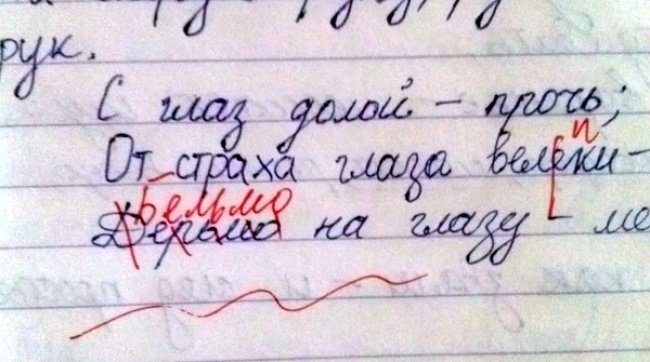 рук.
С глаз долой - прочь;
От страха глаза велеки -
и
Бельмо
Дерьмо на глазу - ме